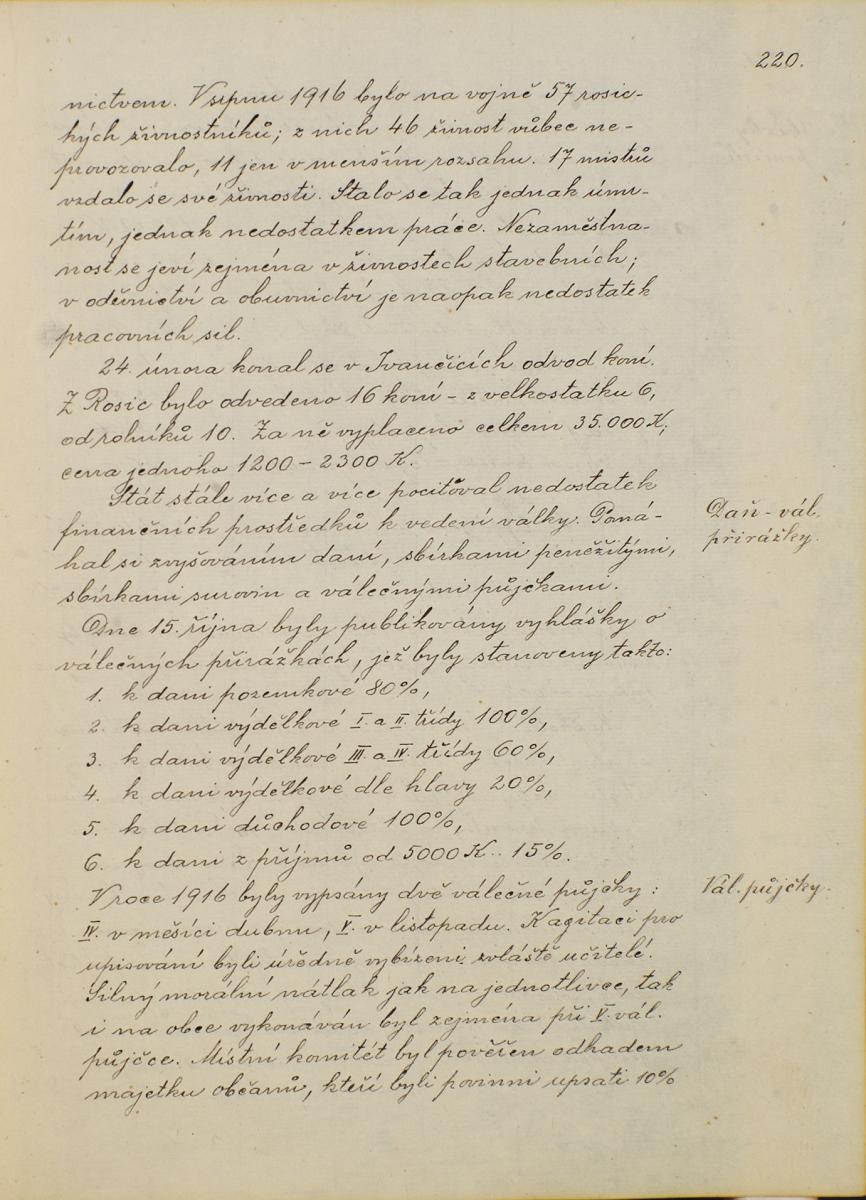 220.
nictvem. V srpnu 1916 bylo na vojně 57 rosic-
kých živnostníků; z nich 46 živnost vůbec ne-
provozovalo, 11 jen v menším rozsahu. 17 mistrů
vzdalo se své živnosti. Stalo se tak jednak úmr-
tím, jednak nedostatkem práce. Nezaměstna-
nost se jeví zejména v živnostech stavebních;
v oděvnictví a obuvnictví je naopak nedostatek
pracovních sil.
24. února konal se v Ivančicích odvod koní.
Z Rosic bylo odvedeno 16 koní - z velkostatku 6,
od rolníků 10. Za ně vyplaceno celkem 35.000 K,
cena jednoho 1200 - 2300 K.
Stát stále více a více pociťoval nedostatek
finančních prostředků k vedení války. Pomá-
hal si zvyšováním daní, sbírkami peněžitými,
sbírkami surovin a válečnými půjčkami.
Daň - vál.
přirážky.
Dne 15. října byly publikovány vyhlášky o
válečných přirážkách, jež byly stanoveny takto:
1. k dani pozemkové 80%,
2. k dani výdělkové I. a II. třídy 100%,
3. k dani výdělkové III. a IV. třídy 60%,
4. k dani výdělkové dle hlavy 20%,
5. k dani důchodové 100%,
6. k dani z příjmů od 5000 K.. 15%.
V roce 1916 byly vypsány dvě válečné půjčky:
Vál. půjčky.
IV. v měsíci dubnu, V. v listopadu. K agitaci pro
upisování byli úředně vybízeni zvláště učitelé.
Silný morální nátlak jak na jednotlivce, tak
i na obce vykonáván byl zejména při V. vál.
půjčce. Místní komitét byl pověřen odhadem
majetku občanů, kteří byli povinni upsati 10%